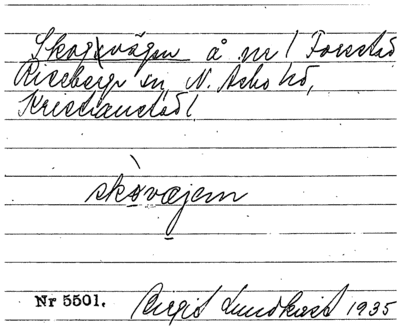 Skogsvägen å nr 1 Forestad
Risebergs sn, N. Åsbo hd,
Kristianstad l
skòvæjem
Nr 5501. Birgit Lundkvist 1935